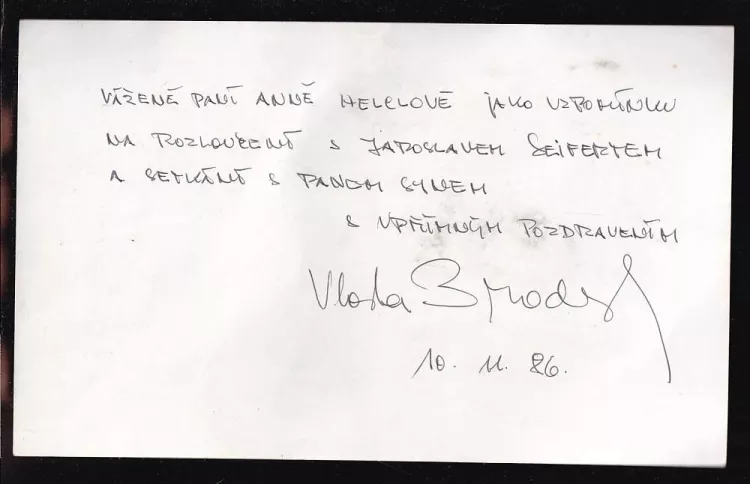 VÁŽENÉ PANÍ ANNĚ HELCLOVÉ jako VZPOMÍNKU
NA ROZLOUČENÍ S JAROSLAVEM SEIFERTEM
A SETKÁNÍ S PANEM SYNEM
S UPŘÍMNÝM POZDRAVENÍM
Vlasta Brodský
10. 11. 86.